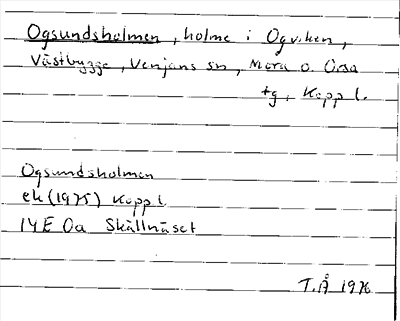 Ogsundsholmen, holme i Ogviken,
Västbygge, Venjans sn, Mora o. Orsa
tg, Kopp l.
Ogsundsholmen
ek (1975) Kopp l.
14E 0a Skällnäset
T.Å 1976